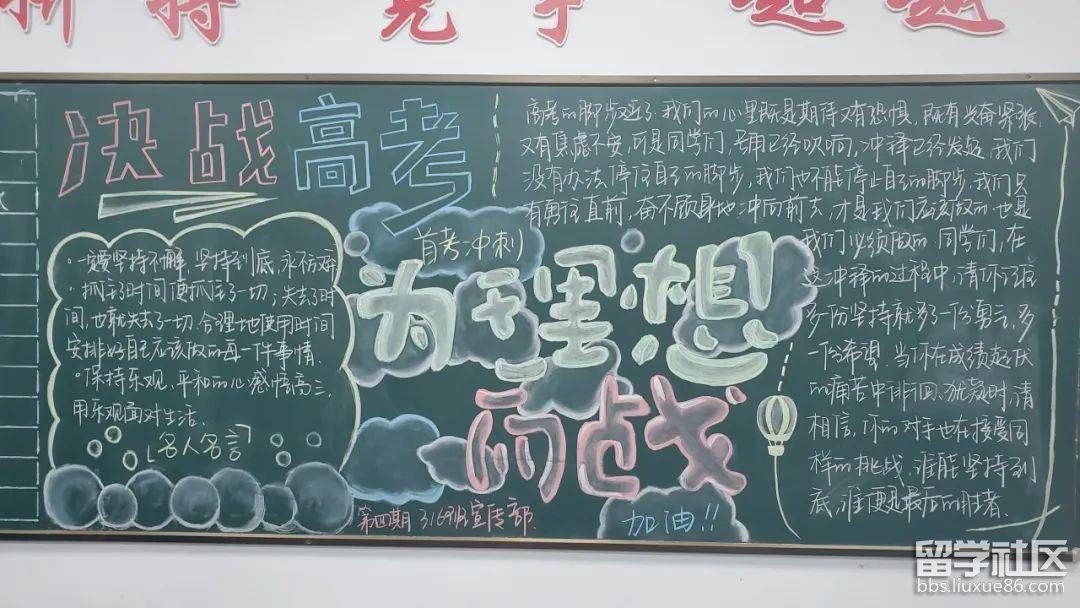 竞争 超越
决战高考
一定要坚持不懈,坚持到底,永不放弃
抓住了时间便抓住了一切;失去了时
间,也就失去了一切.合理地使用时间
安排好自己应该做的每一件事情.
保持乐观、平和的心感悟高三,
用乐观面对生活.
名人名言
首考冲刺
为理想
而战
第四期 316班宣传部.
加油!!
高考的脚步近了,我们的心里既是期待又有恐惧,既有兴奋紧张,
又有焦虑不安,可是同学们,号角已经吹响,冲锋已经发起,我们
没有办法停住自己的脚步,我们也不能停止自己的脚步,我们只
有勇往直前,奋不顾身地冲向前去,才是我们应该做的.也是
我们必须做的.同学们,在
这冲锋的过程中,请你记住
多一份坚持就多了一份勇气,多
一份希望.当你在成绩起伏
的痛苦中徘徊、犹疑时,请
相信,你的对手也在接受同
样的挑战,谁能坚持到
底,谁便是最后的胜者.
留学社区
bbs.liuxue86.com